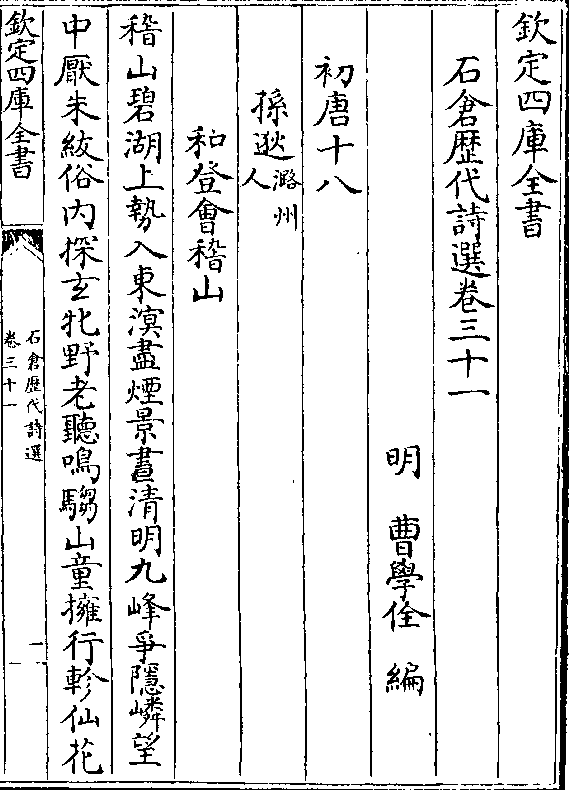 欽定四庫全書
石倉歷代詩選卷三十一
明 曹學佺 編
初唐十八
孫逖潞州人
和登會稽山
稽山碧湖上勢入東溟盡煙景晝清明九峰爭隱嶙望
中厭朱紱俗內探玄牝野老聽鳴騶山童擁行軫仙花
欽定四庫全書
石倉歷代詩選
卷三十一
一